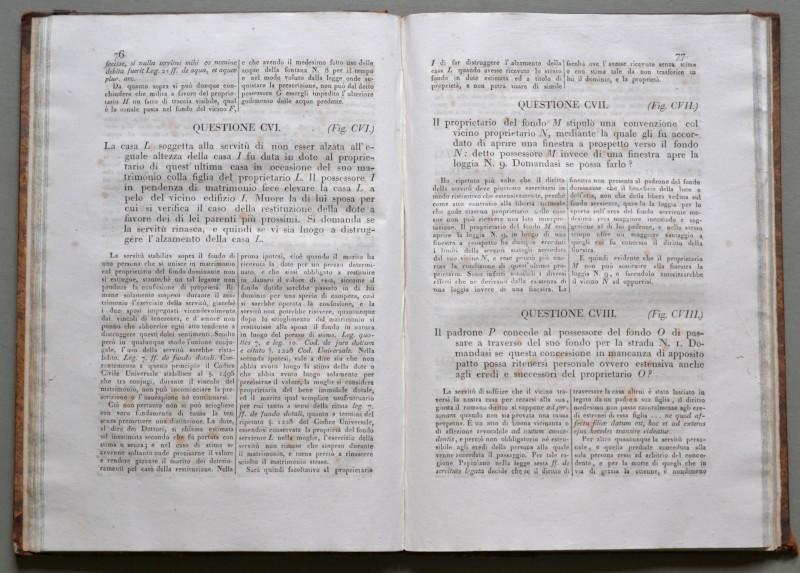 76
fecisse, si nulla servitus mihi eo nomine
debita fuerit Leg. 21 ff. de aqua, et aquae
pluv. arc.
Da quanto sopra si può dunque con-
chiudere che milita a favore del proprie-
tario H un facto di traccia visibile, qual
è la canale posta nel fondo del vicino F,
e che avendo il medesimo fatto uso delle
acque della fontana N. 8 per il tempo
e nel modo voluto dalla legge onde ac-
quistare la prescrizione, non può dal detto
possessore G essergli impedito l'ulteriore
godimento delle acque predette.
QUESTIONE CVI. (Fig. CVI.)
La casa L soggetta alla servitù di non esser alzata all'e-
guale altezza della casa I fu data in dote al proprie-
tario di quest'ultima casa in occasione del suo ma-
trimonio colla figlia del proprietario L. Il possessore I
in pendenza di matrimonio fece elevare la casa L a
pelo del vicino edifizio I. Muore la di lui sposa per
cui si verifica il caso della restituzione della dote a
favore dei di lei parenti più prossimi. Si domanda se
la servitù rinasca, e quindi se vi sia luogo a distrug-
gere l'alzamento della casa L.
La servitù stabilita sopra il fondo di
una persona che si unisce in matrimonio
col proprietario del fondo dominante non
si estingue, stantechè un tal legame non
produce la confusione di proprietà. Ri-
mane solamente sospeso durante il ma-
trimonio l'esercizio della servitù, giacchè
i due sposi impegnati vicendevolmente
dai vincoli di tenerezza, e d'amore non
ponno che abborrire ogni atto tendente a
distruggere questi dolci sentimenti. Sciolto
però in qualunque modo l'unione conju-
gale, l'uso della servitù sarebbe rista-
bilito. Leg. 7. ff. de fundo dotali. Con-
sentaneo a questo principio il Codice
Civile Universale stabilisce al §. 1495
che tra conjugi, durante il vincolo del
matrimonio, non può incominciare la pre-
scrizione o l'usucapione nè continuarsi.
Ciò non pertanto non si può sciogliere
con vero fondamento di causa la tesi
senza premettere una distinzione. La dote,
al dire dei Dottori, si diffinisce estimata
od inestimata secondo che fu portata con
stima o senza; e nel caso di stima se
avvenne soltanto onde precisarne il valore
e rendere garante il marito dei deterio-
ramenti pel caso della restituzione. Nella
prima ipotesi, cioè quando il marito ha
ricevuta la dote per un prezzo determi-
nato, e che siasi obbligato a restituire
in danaro il valore di essa, siccome il
fondo dotale sarebbe passato in di lui
dominio per una specie di compera, così
si sarebbe operata la confusione, e la
servitù non potrebbe rivivere, quantunque
dopo lo scioglimento del matrimonio si
restituisse alla sposa il fondo in natura
in luogo del prezzo di stima. Leg. quo-
ties 7, e leg. 10. Cod. de jure dotium
e citato §. 1228 Cod. Universale. Nella
seconda ipotesi, vale a dire sia che non
abbia avuto luogo la stima della dote o
che abbia avuto luogo solamente per
precisarne il valore, la moglie si considera
proprietaria del bene immobile dotale,
ed il marito qual semplice usufruttuario
per cui tanto a sensi della citata leg. 7.
ff. de fundo dotali, quanto a termini del
ripetuto §. 1228 del Codice Universale,
essendosi conservata la proprietà del fondo
serviente L nella moglie, l'esercizio della
servitù non rimase che sospeso durante
il matrimonio, e torna perciò a rinascere
sciolto il matrimonio stesso.
Sarà quindi facoltativo al proprietario
77
I di far distruggere l'alzamento della
casa L quando avesse ricevuto lo stesso
fondo in dote estimata ed a titolo di
proprietà, e non potrà usare di simile
facoltà ove l'avesse ricevuta senza stima
e con stima tale da non trasferire in
lui il dominio, e la proprietà.
QUESTIONE CVII. (Fig. CVII.)
Il proprietario del fondo M stipulò una convenzione col
vicino proprietario N, mediante la quale gli fu accor-
dato di aprire una finestra a prospetto verso il fondo
N: detto possessore M invece di una finestra apre la
loggia N. 9. Domandasi se possa farlo?
Ho ripetuto più volte che il diritto
della servitù deve piuttosto esercitarsi in
modo ristrettivo che estensivamente, perchè
come atto contrario alla libertà naturale
che gode ciascun proprietario sulle cose
sue non può ricevere una lata interpre-
tazione. Il proprietario del fondo M con
aprire la loggia N. 9, in luogo di una
finestra a prospetto ha dunque ecceduti
i limiti della servitù statagli accordata
dal suo vicino N, e rese perciò più one-
rosa la condizione di quest'ultimo pro-
prietario. Sono infatti valutabili diversi
effetti che ne derivano dalla esistenza di
una loggia invece di una finestra. La
finestra non presenta al padrone del fondo
dominante che il beneficio della luce o
dell'aria, non che della libera veduta sul
fondo serviente, quando la loggia per la
aperta sull'area del fondo serviente mo-
desimo reca maggiore incomodo e sog-
gezione al di lui padrone, e nello stesso
tempo offre un maggiore vantaggio a
quegli cui fu concesso il diritto della
finestra.
E quindi evidente che il proprietario
M non può sostituire alla finestra la
loggia N. 9, e facendolo autorizzerebbe
il vicino N ad opporsi.
QUESTIONE CVIII. (Fig. CVIII.)
Il padrone P concede al possessore del fondo O di pas-
sare a traverso del suo fondo per la strada N. 1. Do-
mandasi se questa concessione in mancanza di apposito
patto possa ritenersi personale ovvero estensiva anche
agli eredi e successori del proprietario O?
La servitù di soffrire che il vicino tra-
versi la nostra casa per recarsi alla sua,
giusta il romano diritto si suppone ad per-
sonam quando non sia provata una causa
perpetua. È un atto di buona vicinanza o
di affezione revocabile ad nutum conce-
dentis, e perciò non obbligatorio nè esten-
sibile agli eredi della persona alla quale
venne accordata il passaggio. Per tale ra-
gione Papiniano nella legge sesta ff. de
servitute legata decide che se il diritto di
traversare la casa altrui è stato lasciato in
legato da un padre a sua figlia, il diritto
medesimo non passa naturalmente agli ere-
di estranei di essa figlia ... ne quod af-
fectu filiae datum est, hoc et ad exteros
ejus haeredes transire videatur.
Per altro quantunque la servitù perso-
nale, e quella prediale conceduta alla
sola persona cessi ad arbitrio del conce-
dente, e per la morte di quegli che in
via di grazia la ottenne, e nondimeno